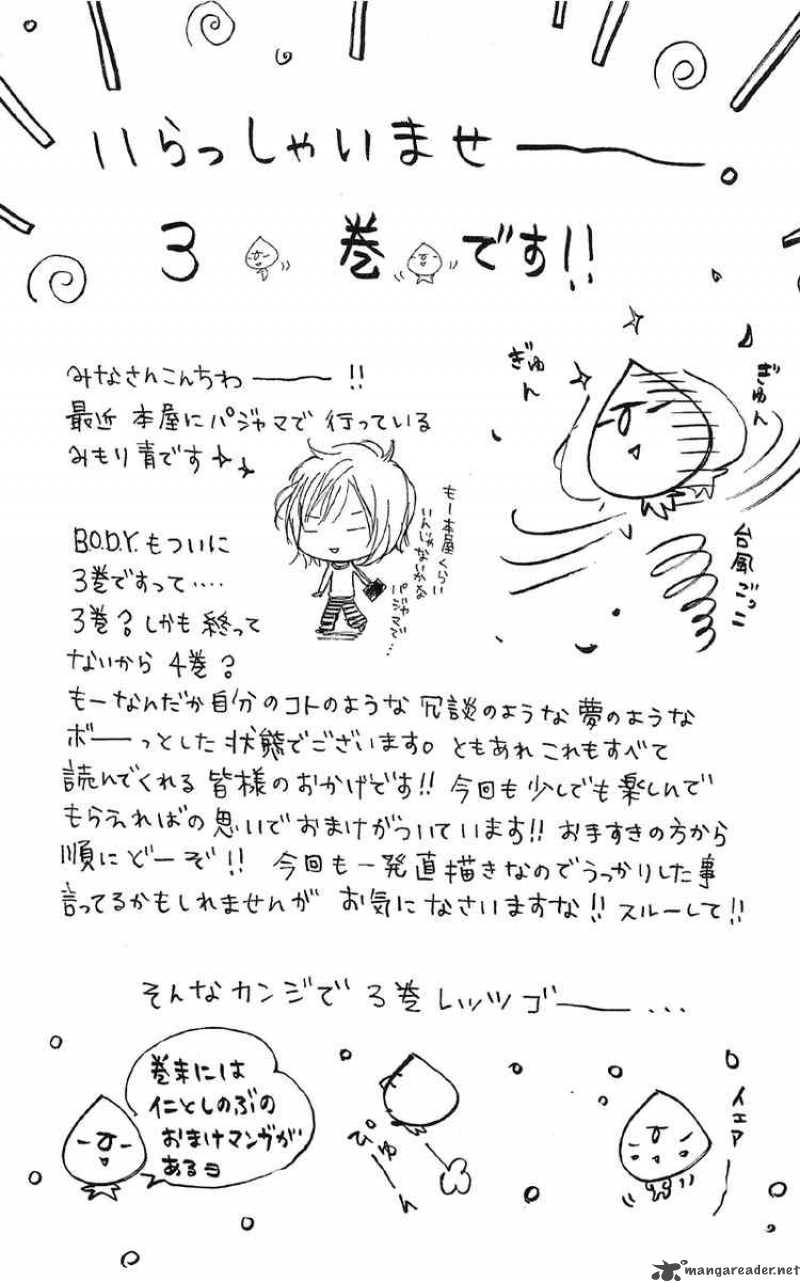 いらっしゃいませーー。
3巻です!!
みなさんこんちわーー!!
最近 本屋にパジャマで 行っている
みもり青です
もー本屋くらい
いんじゃないかな
パジャマで…
ぎゅん
ぎゅん
台風ごっこ
B.O.D.Y.もついに
3巻ですって‥‥
3巻?しかも 終って
ないから 4巻?
もーなんだか自分のコトのような 冗談のような夢のような
ボーーっとした 状態でございます。ともあれ これもすべて
読んでくれる 皆様のおかげです!! 今回も 少しでも 楽しんで
もらえればの 思いで おまけがついています!! お手すきの方から
順に どーぞ!! 今回も 一発直描きなので うっかりした事
言ってるかもしれませんが お気になさいますな!! スルーして!!
そんなカンジで 3巻 レッツゴーー...
巻末には
仁としのぶの
おまけマンガが
あるヨ
ぴゅーーん
イエアーー
mangareader.net